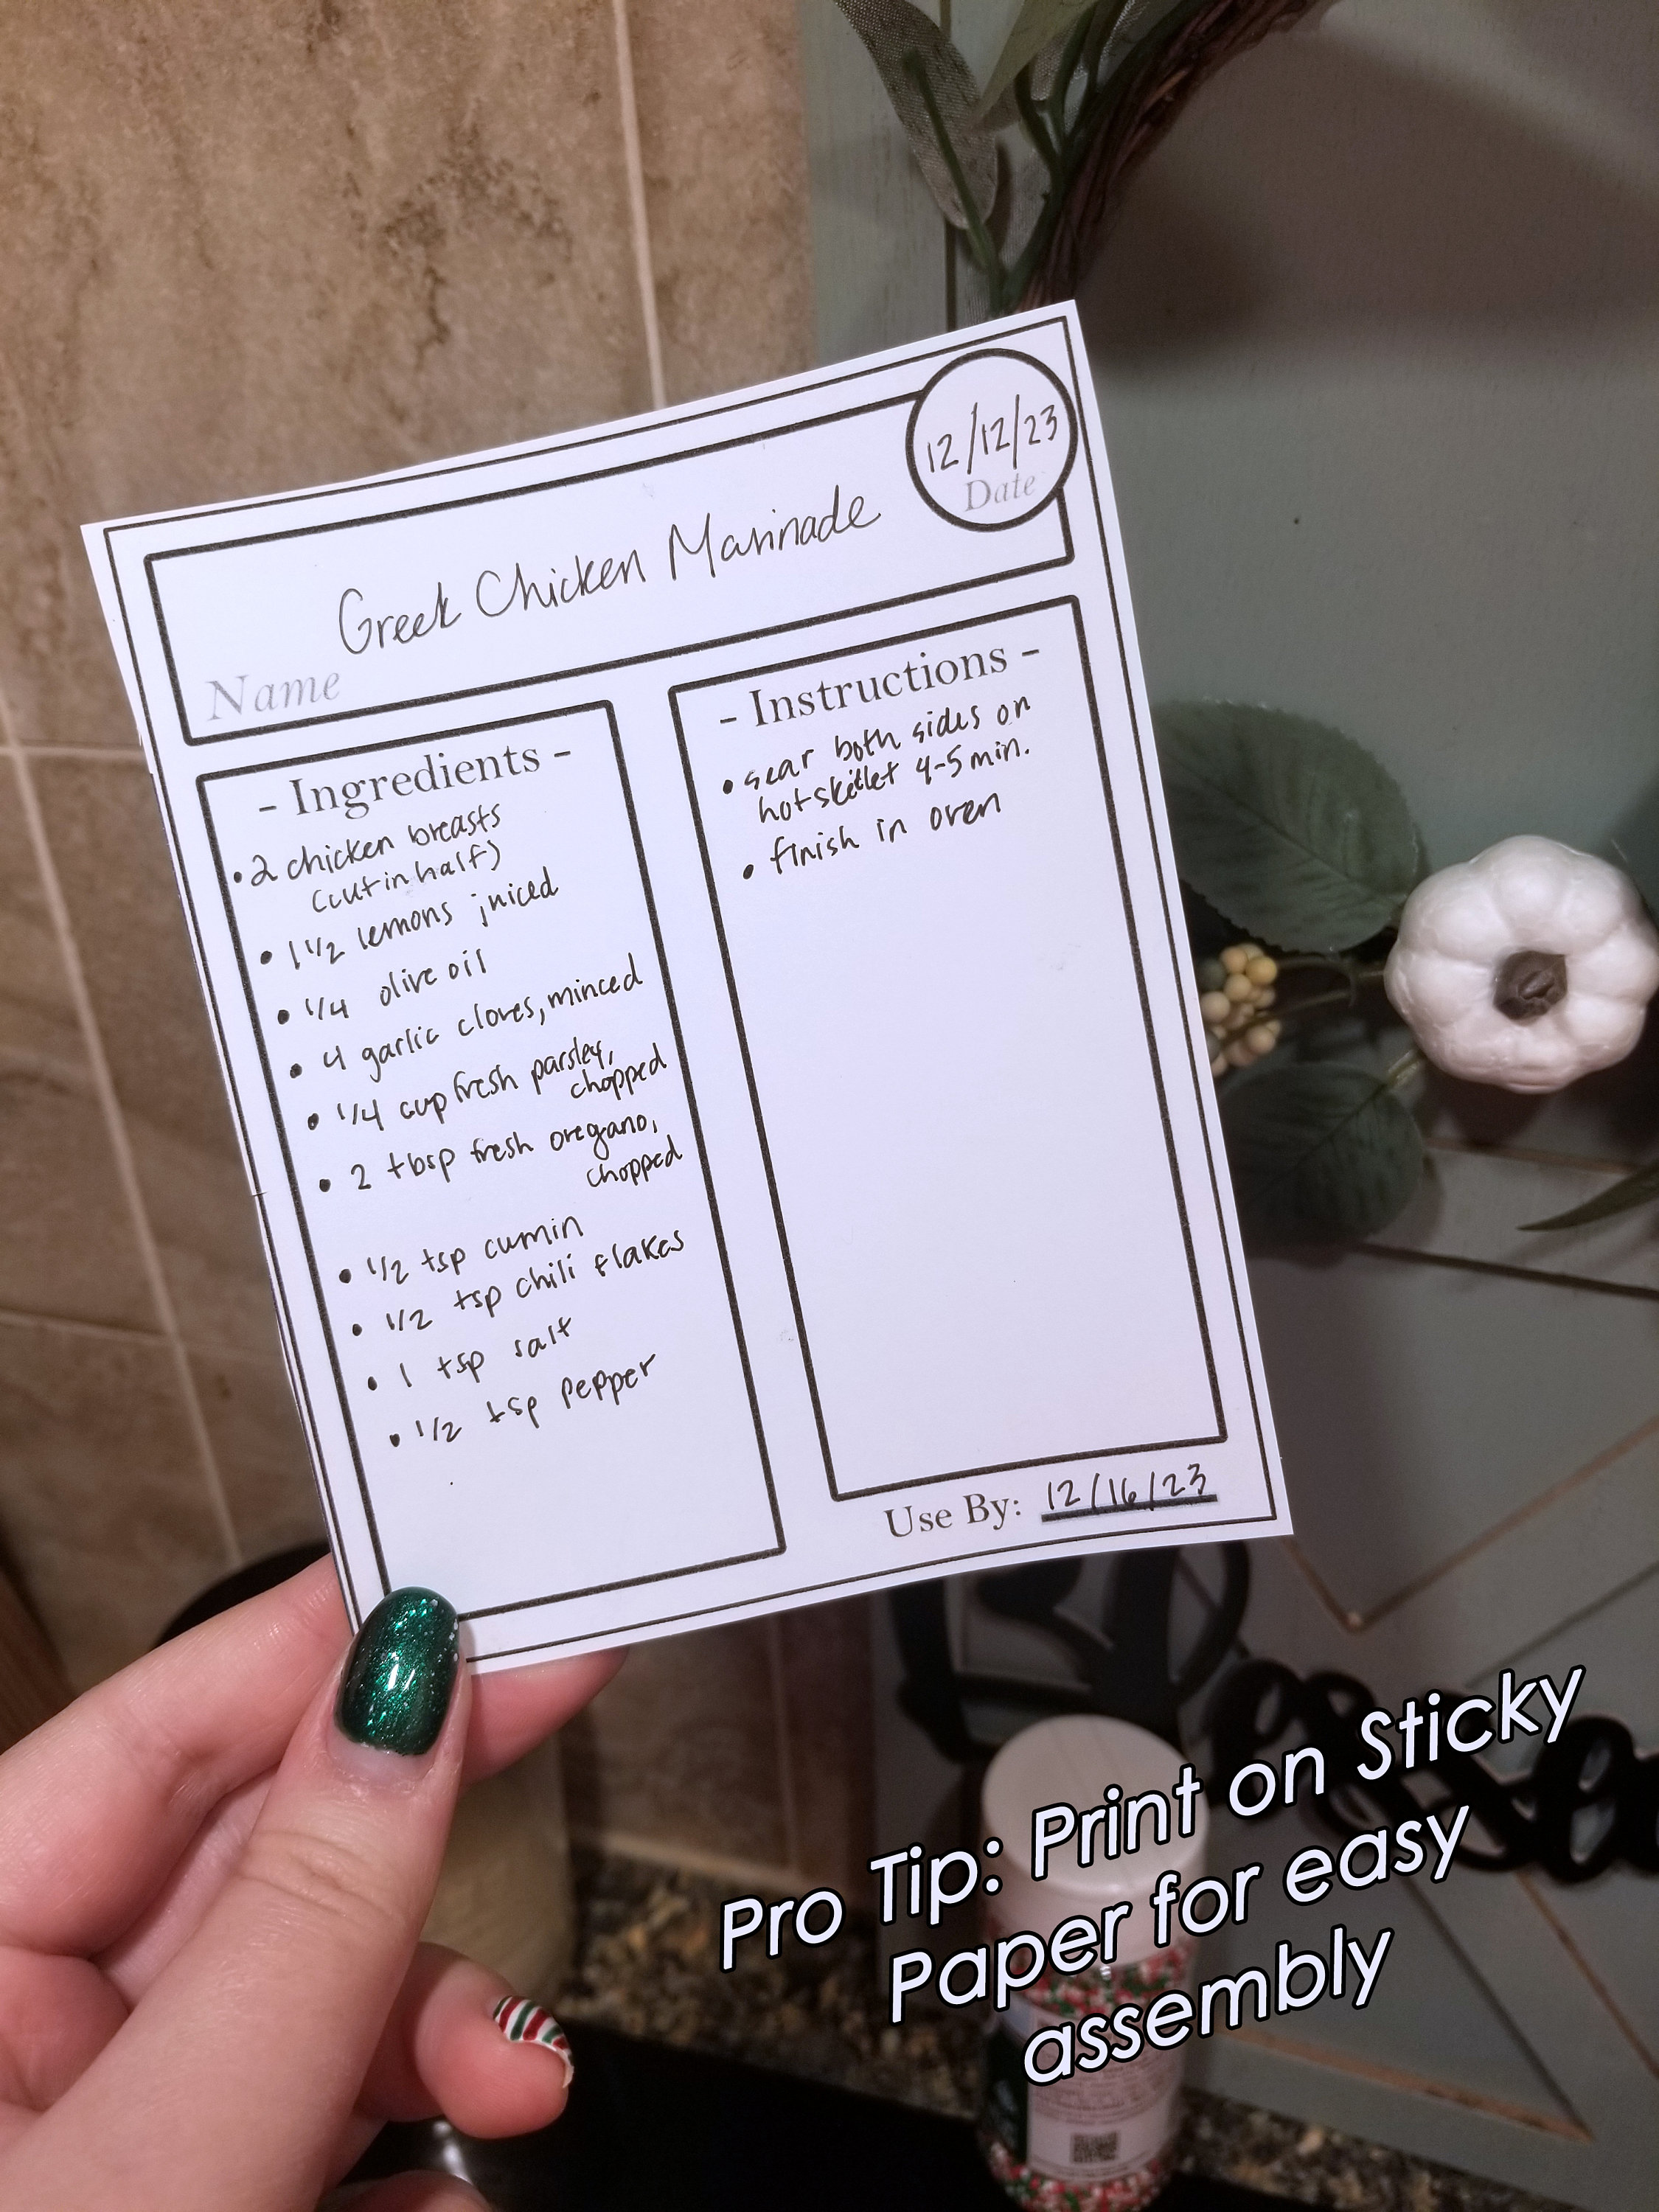 12/12/23
Date
Greek Chicken Marinade
Name
- Ingredients -
• 2 chicken breasts
(cut in half)
• 1 1/2 lemons juiced
• 1/4 olive oil
• 4 garlic cloves, minced
• 1/4 cup fresh parsley,
chopped
• 2 tbsp fresh oregano,
chopped
• 1/2 tsp cumin
• 1/2 tsp chili flakes
• 1 tsp salt
• 1/2 tsp pepper
- Instructions -
• sear both sides on
hot skillet 4-5 min.
• finish in oven
Use By: 12/16/23
Pro Tip: Print on Sticky
Paper for easy
assembly